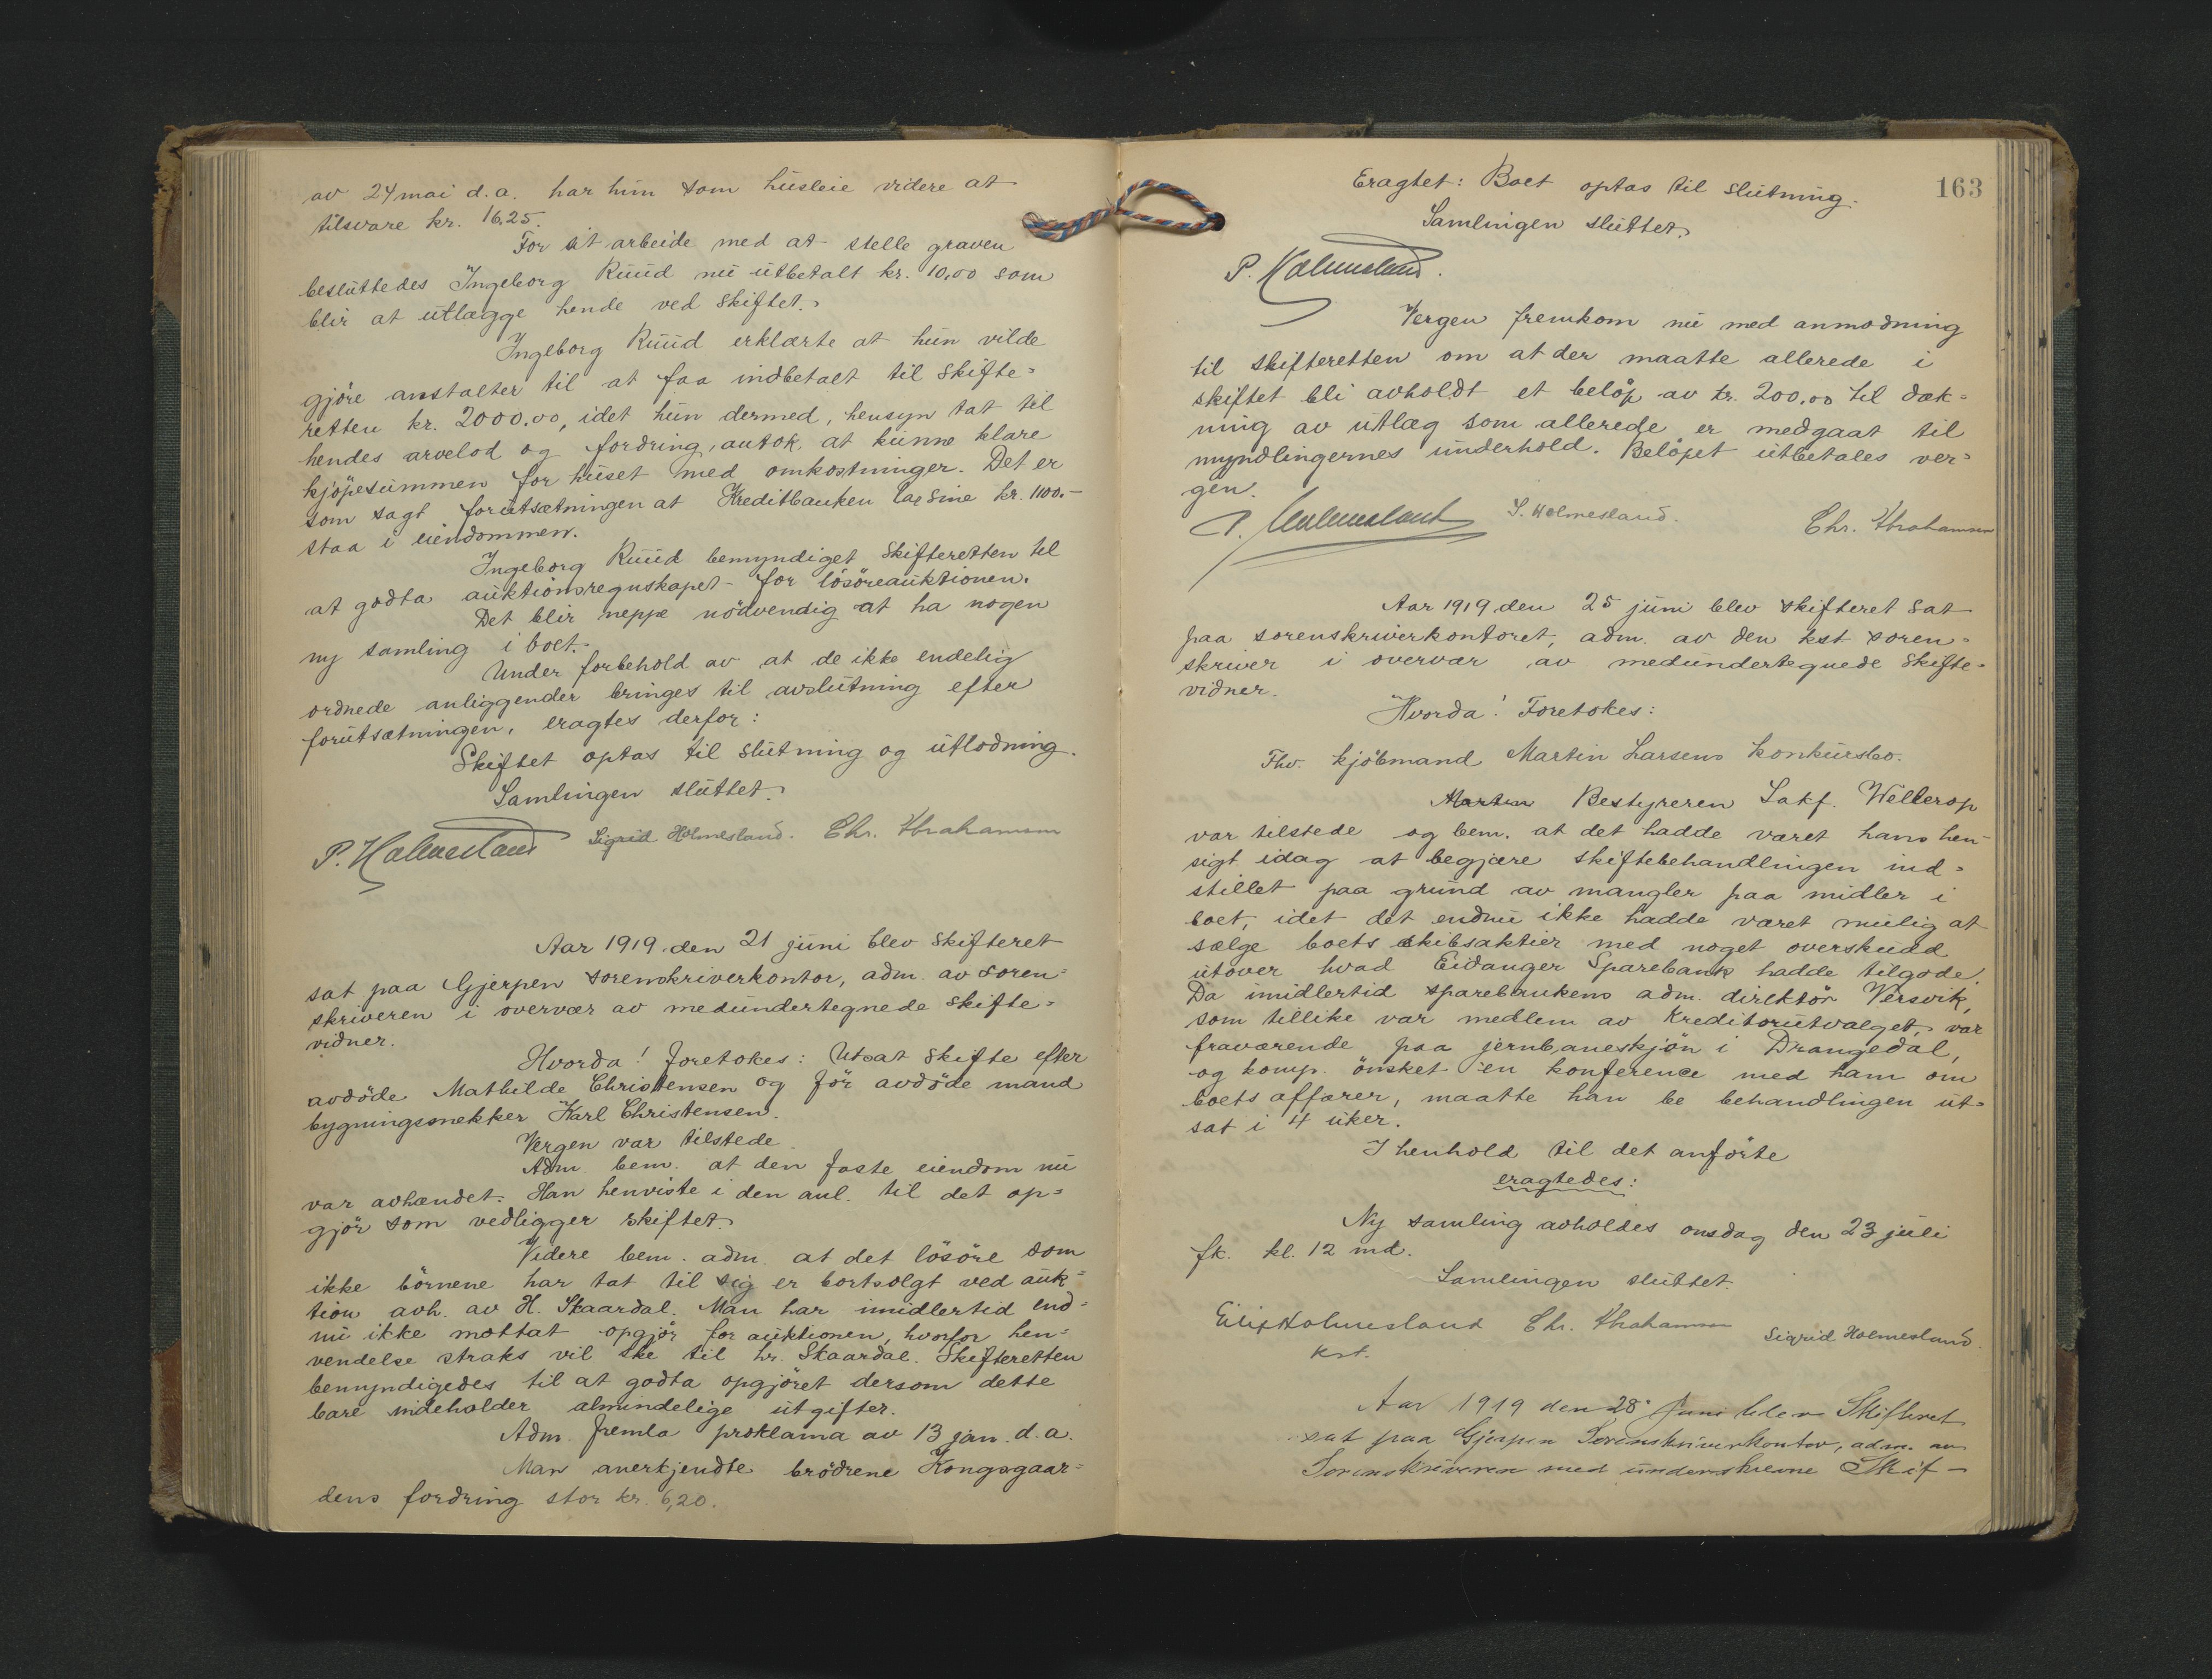 av 24 mai d.a. har hun som husleie videre at
tilsvare kr. 16,25.
For sit arbeide med at stelle graven
besluttedes Ingeborg Ruud nu utbetalt kr. 10,00 som
blir at utlægge hende ved skiftet.
Ingeborg Ruud erklærte at hun vilde
gjöre anstalter til at faa indbetalt til skifte=
retten kr. 2000.00, idet hun dermed, hensyn tat til
hendes arvelod og fordring, antok at kunne klare
kjöpesummen for huset med omkostninger. Det er
som sagt forutsætningen at Kreditbanken lar sine kr. 1100.-
staa i eiendommen.
Ingeborg Ruud bemyndiget skifteretten til
at godta auktionsregnskapet for lösöreauktionen.
Det blir neppe nödvendig at ha nogen
ny samling i boet.
Under forbehold av at de ikke endelig
ordnede anliggender bringes til avslutning efter
forutsætningen, eragtes derfor:
Skiftet optas til slutning og utlodning.
Samlingen sluttet.
P. Holmesland Sigrid Holmesland. Chr. Abrahamsen
Aar 1919 den 21 juni blev skifteret
sat paa Gjerpen sorenskriverkontor, adm. av soren=
skriveren i overvær av medundertegnede skifte=
vidner.
Hvorda! foretokes: Utsat skifte efter
avdöde Mathilde Christensen og för avdöde mand
bygningssnekker Karl Christensen.
Vergen var tilstede.
Adm. bem. at den faste eiendom nu
var avhændet. Han henviste i den anl. til det op=
gjör som vedligger skiftet.
Videre bem. adm. at det lösöre som
ikke börnene har tat til sig er bortsolgt ved auk=
tion avh. av H. Skaardal. Man har imidlertid end=
nu ikke mottat opgjör for auktionen, hvorfor hen=
vendelse straks vil ske til hr. Skaardal. Skifteretten
bemyndigedes til at godta opgjöret dersom dette
bare indeholder almindelige utgifter.
Adm. fremla proklama av 13 jan. d.a.
Man anerkjendte brödrene Kongsgaar=
dens fordring stor kr. 6,20.
163
Eragtet: Boet optas til slutning.
Samlingen sluttet.
P. Holmesland.
Vergen fremkom nu med anmodning
til skifteretten om at der maatte allerede i
skiftet bli avholdt et belöp av kr. 200,00 til dæk=
ning av utlæg som allerede er medgaat til
myndlingernes underhold. Belöpet utbetales ver=
gen.
P. Holmesland S. Holmesland. Chr. Abrahamsen
Aar 1919 den 25 juni blev skifteret sat
paa sorenskriverkontoret, adm. av den kst soren=
skriver i overvær av medundertegnede skifte=
vidner.
Hvorda! Foretokes:
Fhv. kjöbmand Martin Larsens konkursbo.
Martin Bestyreren Sakf. Wellerop
var tilstede og bem. at det hadde været hans hen-
sigt idag at begjære skiftebehandlingen ind=
stillet paa grund av mangler paa midler i
boet, idet det endnu ikke hadde været mulig at
sælge boets skibsaktier med noget overskudd
utover hvad Eidanger Sparebank hadde tilgode.
Da imidlertid sparebankens adm. direktör Versvik,
som tillike var medlem av Kreditorutvalget, var
fraværende paa jernbaneskjön i Drangedal,
og komp. önsket en konference med ham om
boets affærer, maatte han be behandlingen ut=
sat i 4 uker.
I henhold til det anförte
eragtedes:
Ny samling avholdes onsdag den 23 juli
fk. kl. 12 md.
Samlingen sluttet.
Eilif Holmesland Chr. Abrahamsen Sigrid Holmesland.
kst.
Aar 1919 den 28 Juni blev Skifteret
sat paa Gjerpen Sorenskriverkontor, adm. av
Sorenskriveren med underskrevne Skif-